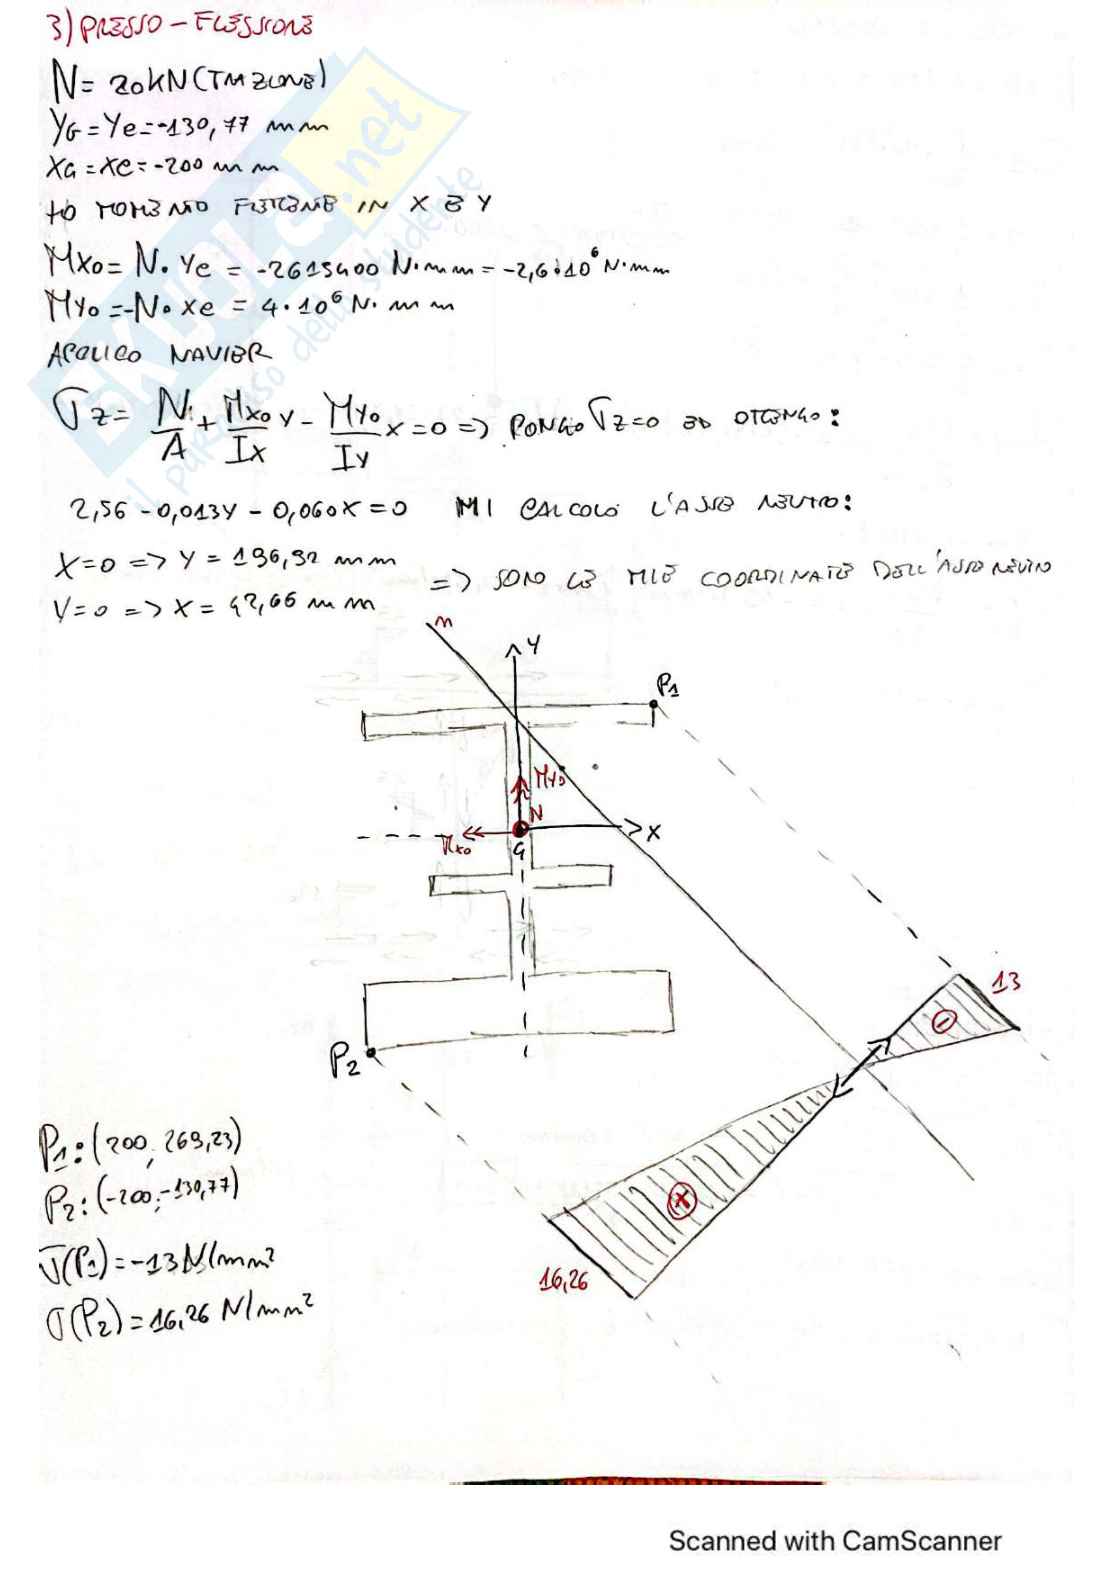 3) PRESSO-FLESSIONE
N= 20kN (TRAZIONE)
YG=Ye=-130,77 mm
XG=Xe=-200 mm
HO MOMENTO FLETTENTE IN X E Y
Mxo= N·Ye = -2615400 N·mm = -2,6·10⁶ N·mm
Myo=-N·Xe = 4·10⁶ N·mm
APPLICO NAVIER
σz= N/A + Mxo/Ix y - Myo/Iy x =0 => PONGO σz=0 ED OTTENGO:
2,56 -0,013Y -0,060X=0 MI CALCOLO L'ASSE NEUTRO:
X=0 => Y = 196,92 mm
=> SONO LE MIE COORDINATE DELL'ASSE NEUTRO
Y=0 => X= 42,66 mm
n
Y
P1
Myo
N
X
Mxo
G
13
-
P2
P1:(200, 269,23)
P2:(-200;-130,77)
+
σ(P1)=-13 N/mm²
16,26
σ(P2)=16,26 N/mm²
SKUOLA.net
il paradiso dello studente
Scanned with CamScanner